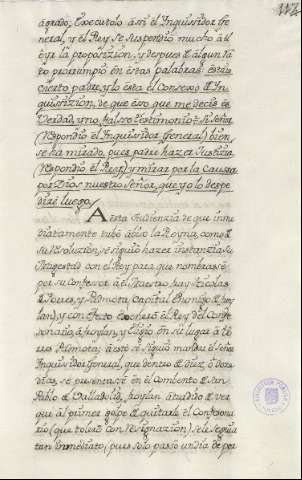 agrado, Executolo assi el Inquissidor Ge
neral, y el Rey se suspendio mucho al
oyr la proposizion, y despues de algun ra
to prorrumpio en estas palabras: Estais
cierto padre, y lo esta el Consexo de In
quisizion, de que esso, que me decis es
Verdad, y no falsso testimonio? Si Señor
(respondio el Inquissidor General) bien
se ha mirado, pues padre hazer Justicia
(respondio el Rey) y mirar por la Caussa
de Dios nuestro Señor, que yo lo despe
diré luego.
A esta Audienzia de que inme
diatamente tubo aviso la Reyna, como de
su resoluzion, se siguio hazer instanzia su
Magestad con el Rey para que nombrase
por su Confessor á el Maestro fray Nicolas
de Torres, y Padmota, Capital Enemigo de Froy
lan, y con efecto exonero el Rey del Confe
sonario, á froylan, y Eligio en su lugar á To
rres Padmota; á esto se siguio mandar el Señor
Inquissidor General, que dentro de diez, ó doze
dias, se presentase en el Combento de San
Pablo de Valladolid, froylan aturdido de ver
que al primer golpe de quitarle el Confesona
rio (que tolero con resignazion) se le seguia
tan inmediato, pues solo passo un dia de por